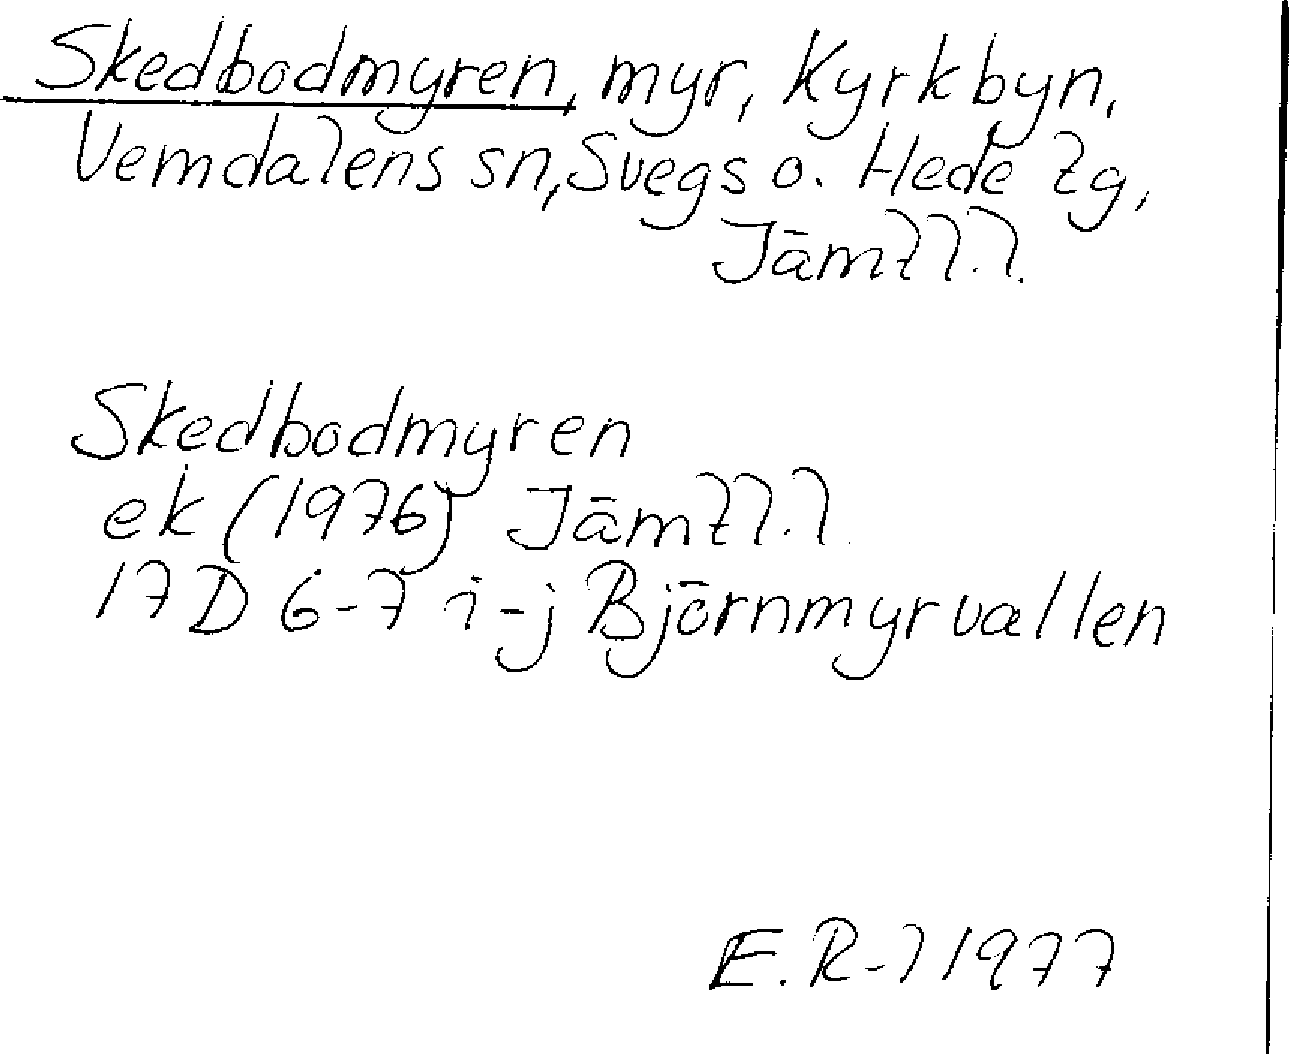 Skedbodmyren, myr, Kyrkbyn,
Vemdalens sn, Svegs o. Hede tg,
Jämtl.l.
Skedbodmyren
ek (1976) Jämtl.l.
17D 6-7 i-j Björnmyrvallen
E.R-l 1977